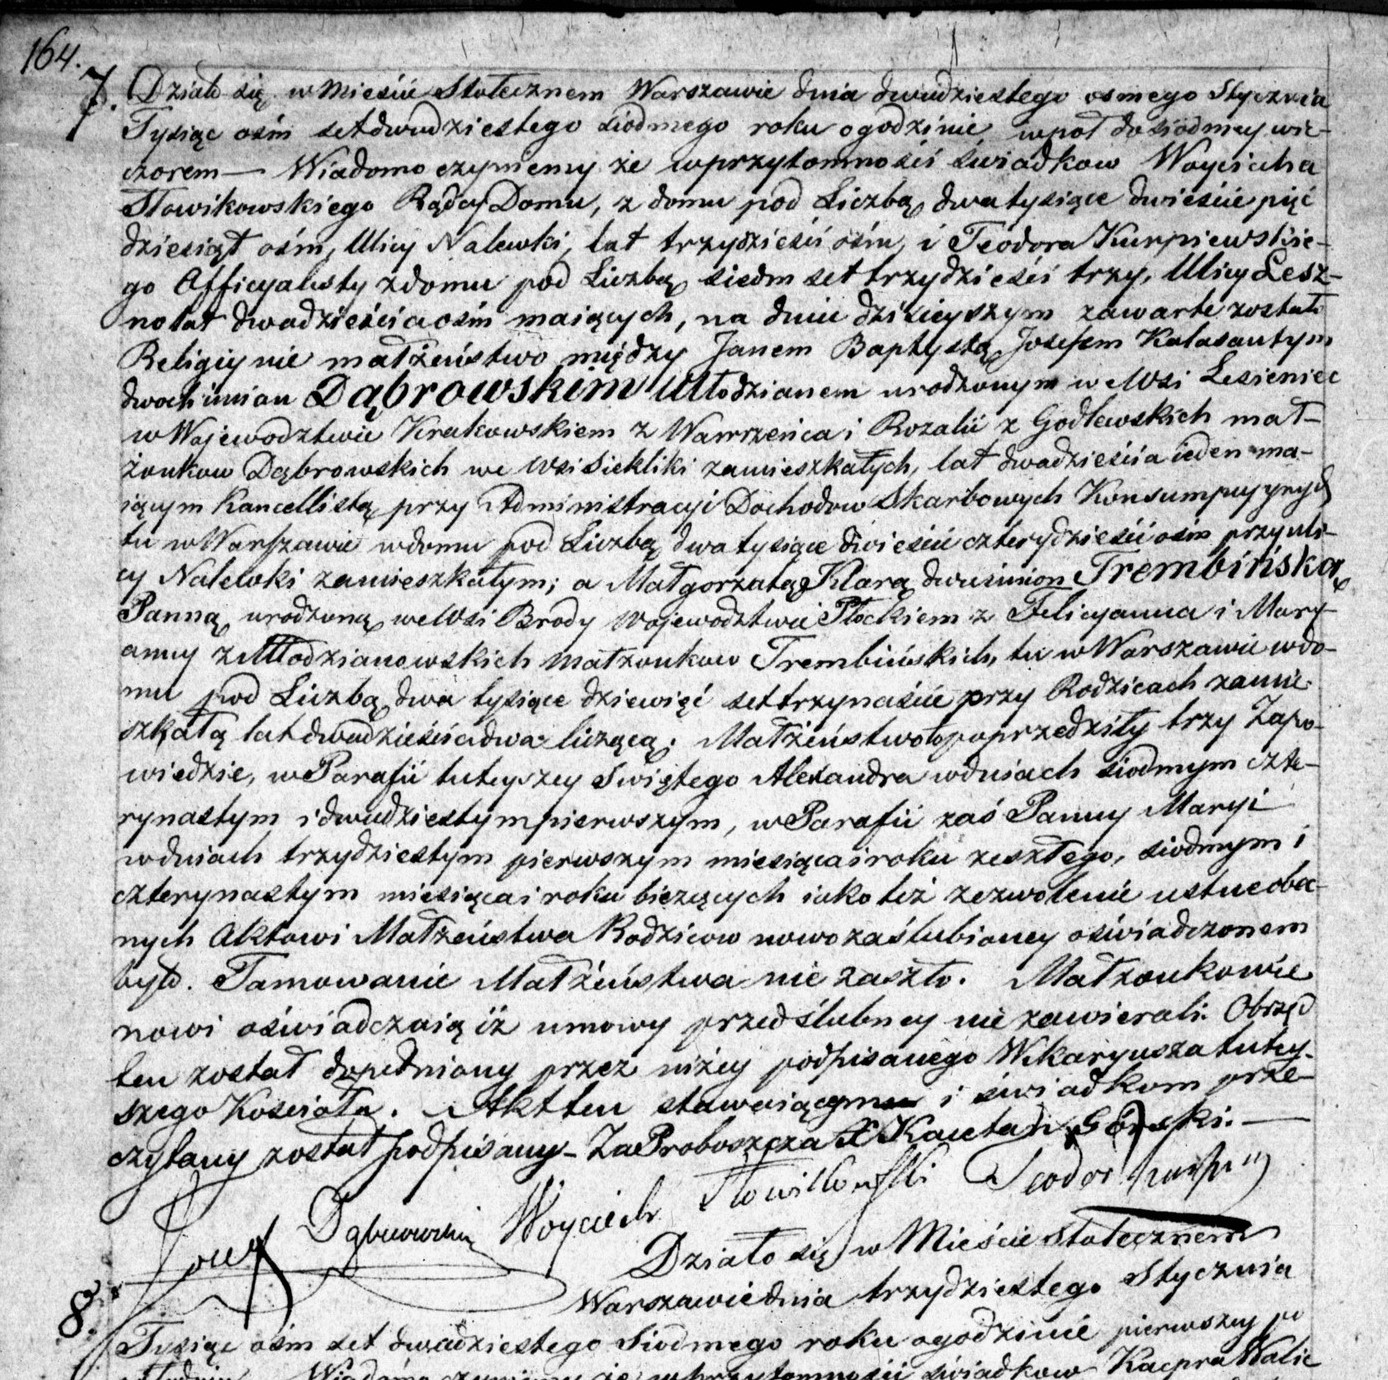 164.
7. Działo się w Mieście Stołecznem Warszawie dnia dwudziestego osmego Stycznia
Tysiąc ośm set dwudziestego siodmego roku o godzinie wpoł do siodmey wie-
czorem — Wiadomo czyniemy że w przytomności świadkow Woyciecha
Słowikowskiego Rządcy Domu, z domu pod Liczbą dwa tysiące dwieście pięć
dziesiąt ośm, Ulicy Nalewki, lat trzydzieści ośm, i Teodora Kurpiewskie-
go Officyalisty z domu pod Liczbą siedm set trzydzieści trzy, Ulicy Lesz-
no lat dwadzieścia ośm maiących, na dniu dzisieyszym zawarte zostało
Religiynie małżeństwo między Janem Baptystą Josefem Kalasantym
dwoch imion Dąbrowskim Młodzianem urodzonym we Wsi Lesieniec
w Wojewodztwie Krakowskiem z Wawrzeńca i Rozalii z Godlewskich mał-
żonkow Dąbrowskich we Wsi Siekliki zamieszkałych, lat dwadzieścia ieden ma-
iącym Kancellistą przy Administracyi Dochodow Skarbowych Konsumpcyynych
tu w Warszawie w domu pod Liczbą dwa tysiące dwieście czterydzieści ośm przy uli-
cy Nalewki zamieszkałym; a Małgorzatą Klarą dwu imion Trembińską
Panną, urodzoną we Wsi Brody Wojewodztwie Płockiem z Felicyanna i Mary-
anny z Młodzianowskich małżonkow Trembińskich, tu w Warszawie w do-
mu pod Liczbą dwa tysiące dziewięć set trzynaście przy Rodzicach zamie-
szkałą lat dwadzieścia dwa liczącą. Małżeństwo to poprzedziły trzy Zapo-
wiedzie, w Parafii tuteyszey Swiętego Alexandra w dniach siodmym czte-
rynastym i dwudziestym pierwszym, w Parafii zaś Panny Maryi
w dniach trzydziestym pierwszym miesiąca i roku zeszłego, siodmym i
czterynastym miesiąca i roku bieżących iako też zezwolenie ustne obec-
nych Aktowi Małżeństwa Rodzicow nowo zaślubioney oświadczonem
było. Tamowanie Małżeństwa nie zaszło. Małżonkowie
nowi oświadczaią iż umowy przedślubney nie zawierali. Obrzęd
ten został dopełniony przez niżey podpisanego Wikaryusza tutey-
szego Kościoła. Akt ten stawaiącym i świadkom prze-
czytany został podpisany — Za Proboszcza X Kaietan Górski. —
Jozef Dąbrowski Woyciech Słowikowski Teodor
8. Działo się w Mieście Stołecznem
Warszawie dnia trzydziestego Stycznia
Tysiąc ośm set dwadziestego Siodmego roku o godzinie pierwszey po
Wiadomo czyniemy że w przytomności świadkow Kacpra